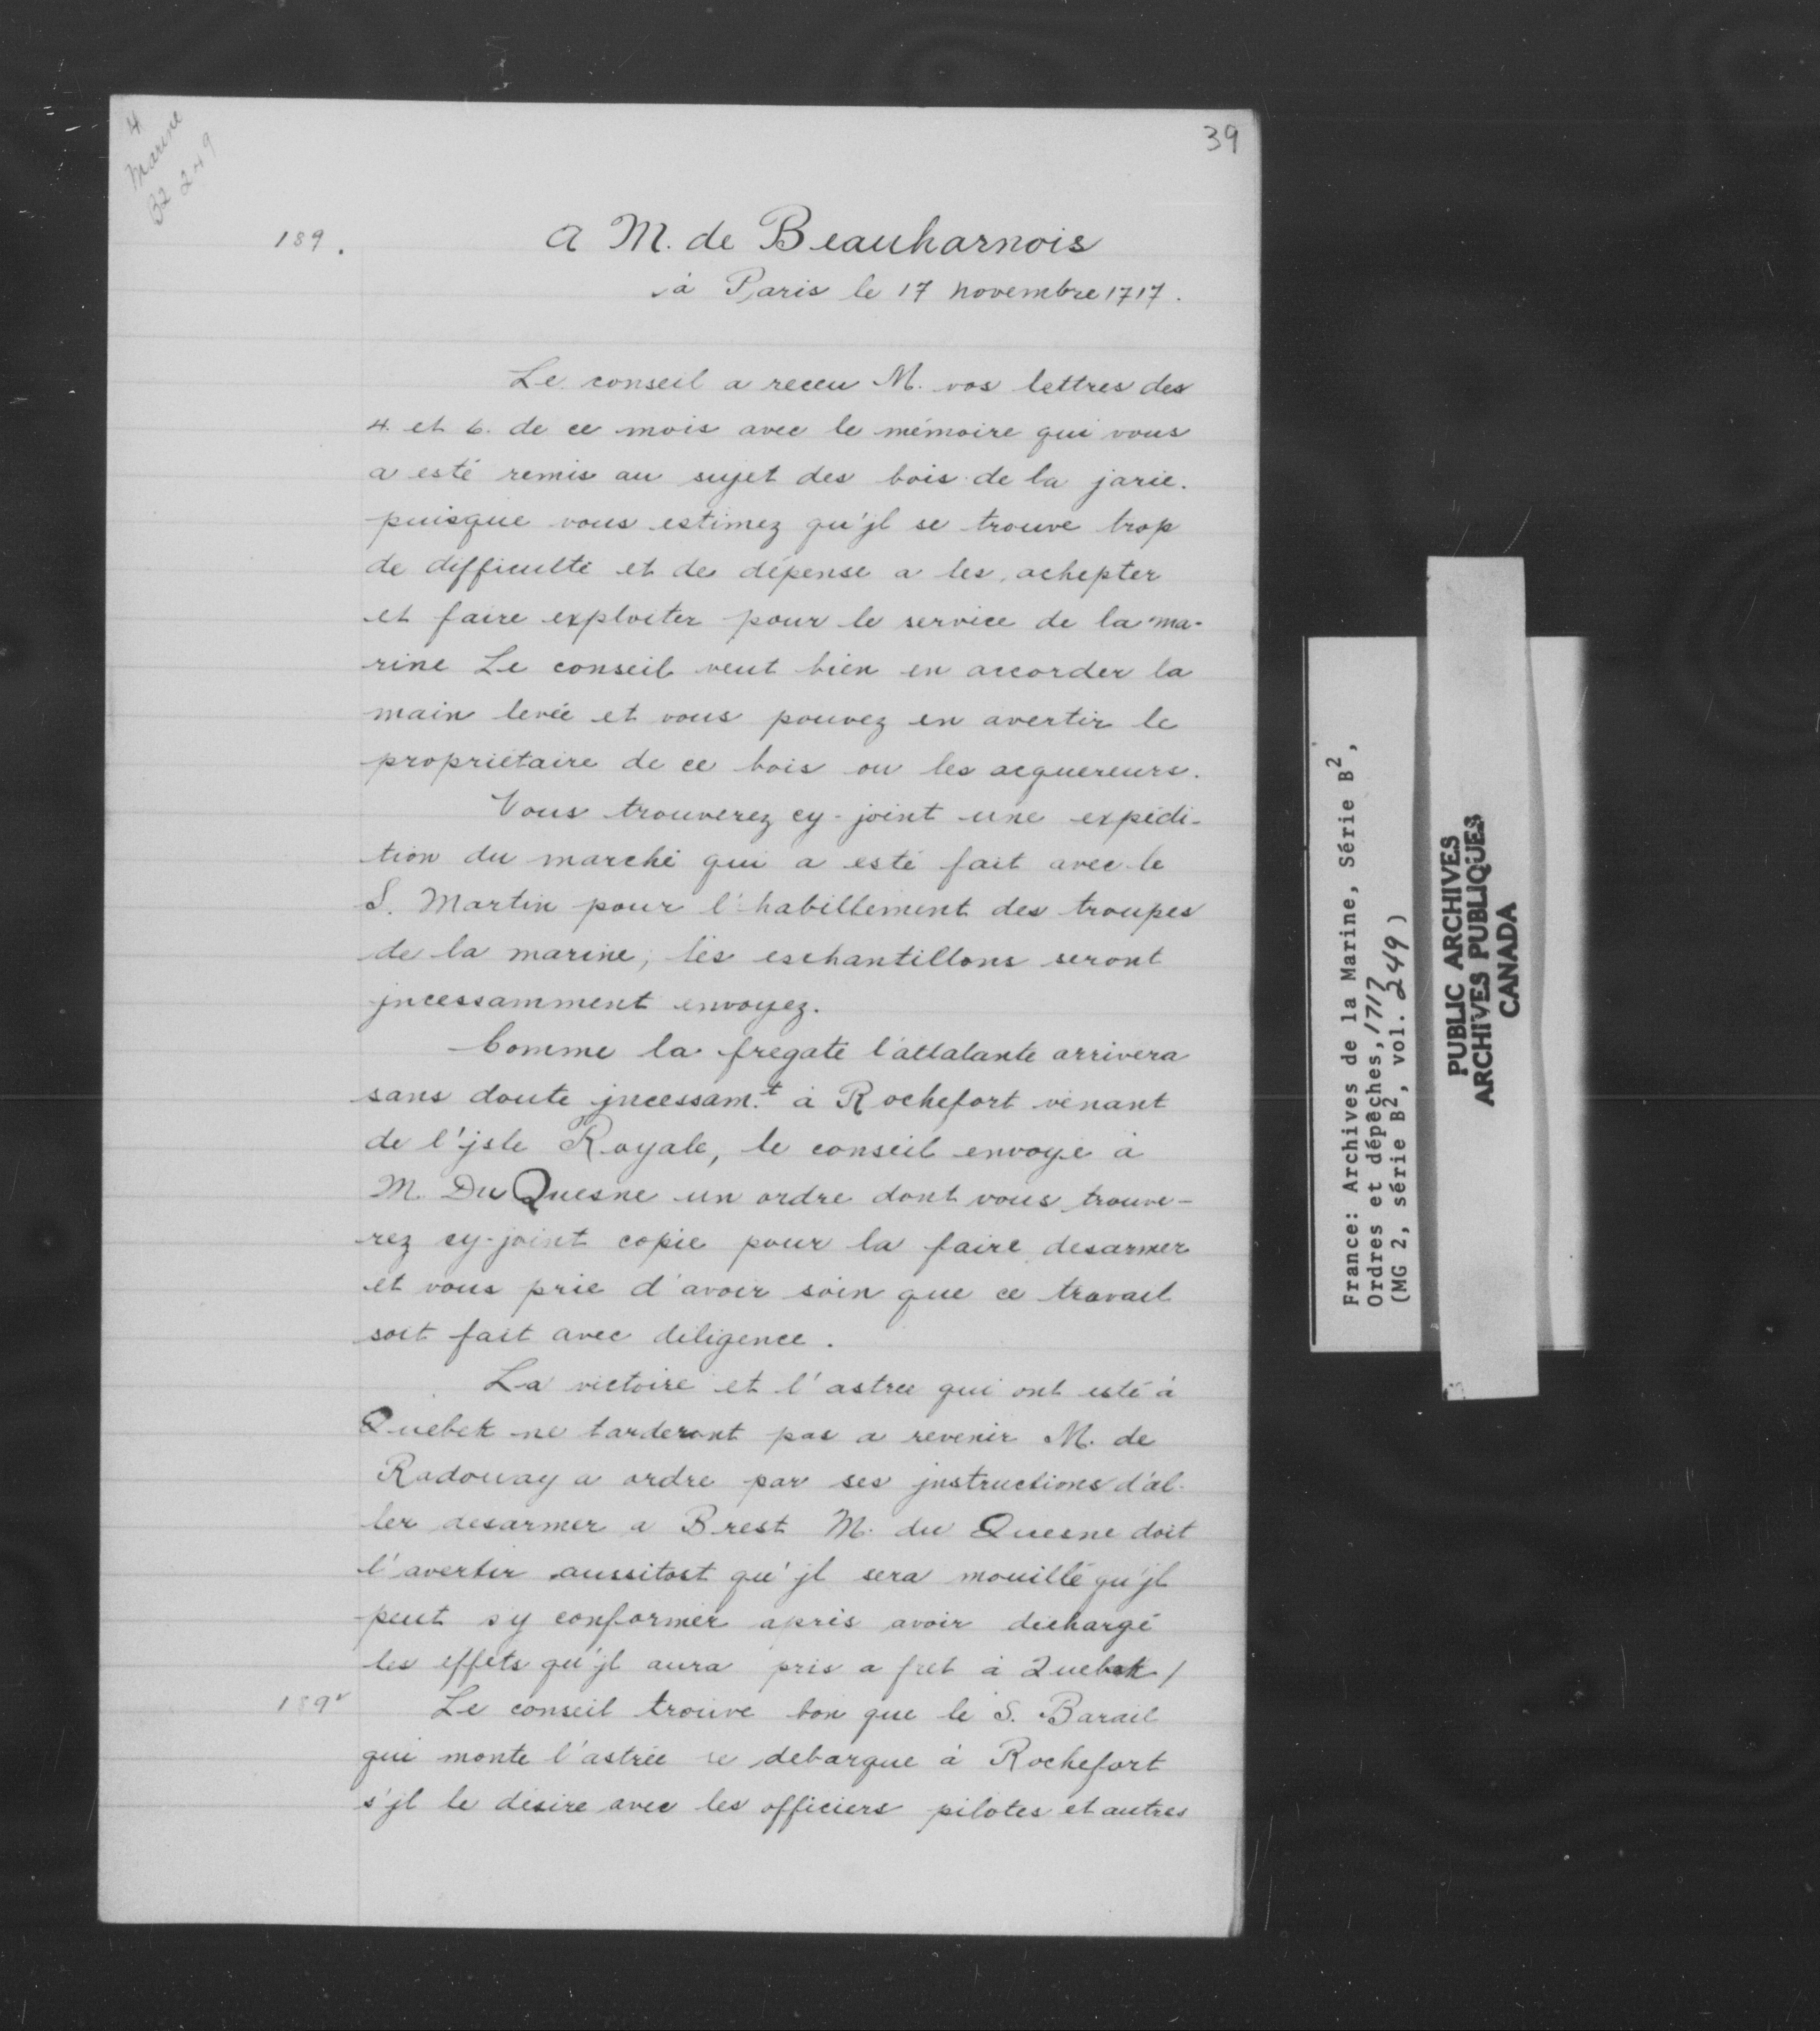 4
Marine
B2 249
39
189.
A M. de Beauharnois
à Paris le 17 novembre 1717.
Le conseil a receu M. vos lettres des
4. et 6. de ce mois avec le mémoire qui vous
a esté remis au sujet des bois de la jarie.
puisque vous estimez qu'jl se trouve trop
de difficulté et de dépense a les achepter
et faire exploiter pour le service de la ma-
rine Le conseil veut bien en accorder la
main levée et vous pouvez en avertir le
propriétaire de ce bois ou les acquereurs.
Vous trouverez cy-joint une expédi-
tion du marché qui a esté fait avec le
S. Martin pour l'habillement des troupes
de la marine, les eschantillons seront
jncessamment envoyez.
Comme la fregate l'attalante arrivera
sans doute jncessam.t à Rochefort venant
de l'jsle Royale, le conseil envoye à
M. Du Quesne un ordre dont vous trouve-
rez cy-joint copie pour la faire desarmer
et vous prie d'avoir soin que ce travail
soit fait avec diligence.
La victoire et l'astree qui ont esté à
Quebek ne tarderont pas a revenir M. de
Radouay a ordre par ses jnstructions d'al-
ler desarmer a Brest M. du Quesne doit
l'avertir aussitost qu'jl sera mouillé qu'jl
peut s'y conformer après avoir déchargé
les effets qu'jl aura pris a fret à Quebek /
189v
Le conseil trouve bon que le S. Barail
qui monte l'astrée se debarque à Rochefort
s'jl le désire avec les officiers pilotes et autres
France: Archives de la Marine, Série B2,
Ordres et dépêches, 1717
(MG 2, série B2, vol. 249)
PUBLIC ARCHIVES
ARCHIVES PUBLIQUES
CANADA